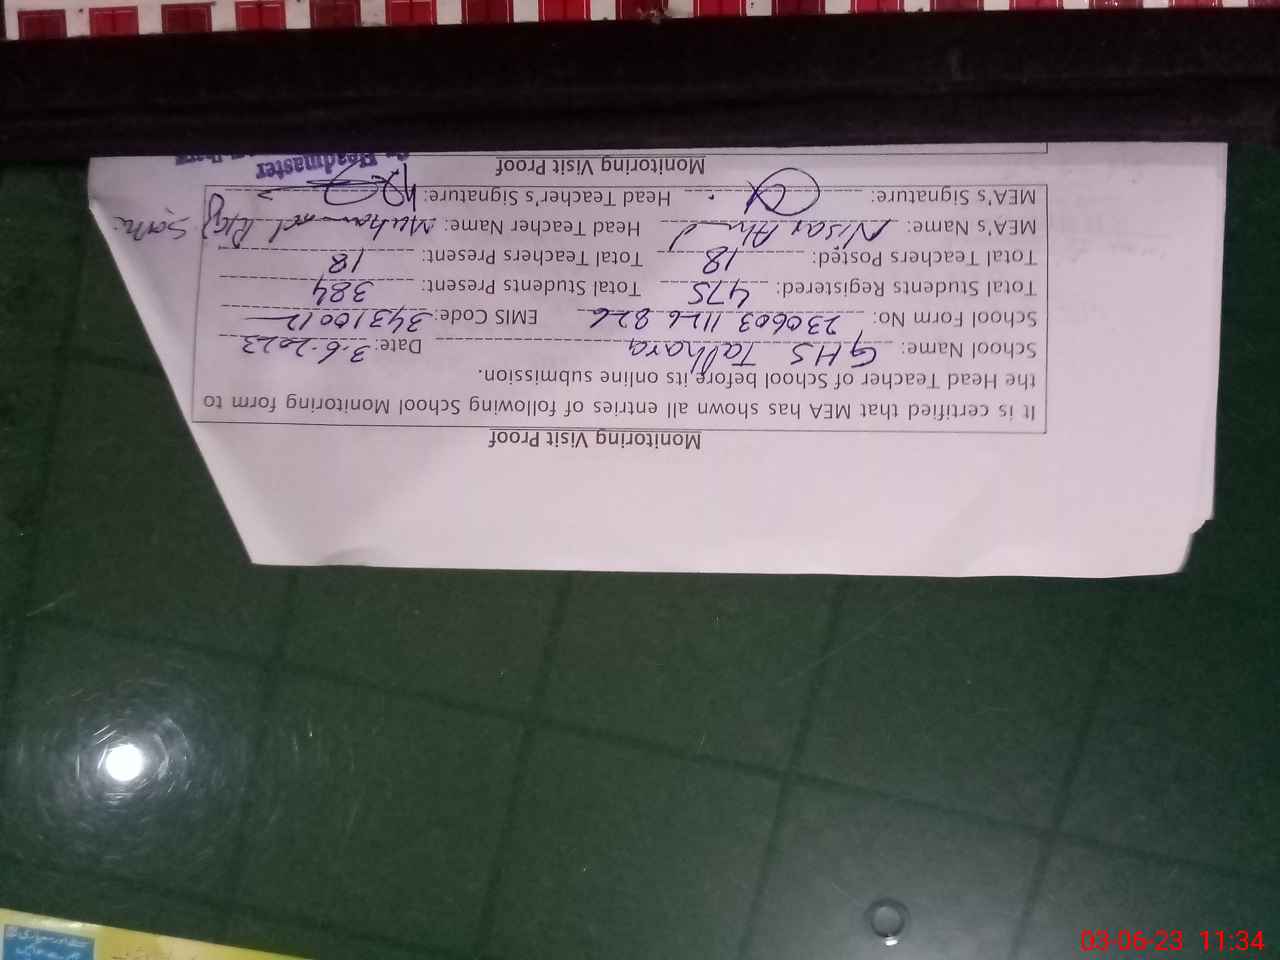 Monitoring Visit Proof
It is certified that MEA has shown all entries of following School Monitoring form to
the Head Teacher of School before its online submission.
School Name: GHS Talhara Date: 3.6.2023
School Form No: 230603 1126 826 EMIS Code: 34310012
Total Students Registered: 475 Total Students Present: 384
Total Teachers Posted: 18 Total Teachers Present: 18
MEA's Name: Nisar Ahmd Head Teacher Name: Muhammad
MEA's Signature: Head Teacher's Signature:
Monitoring Visit Proof
Headmaster
03-06-23 11:34